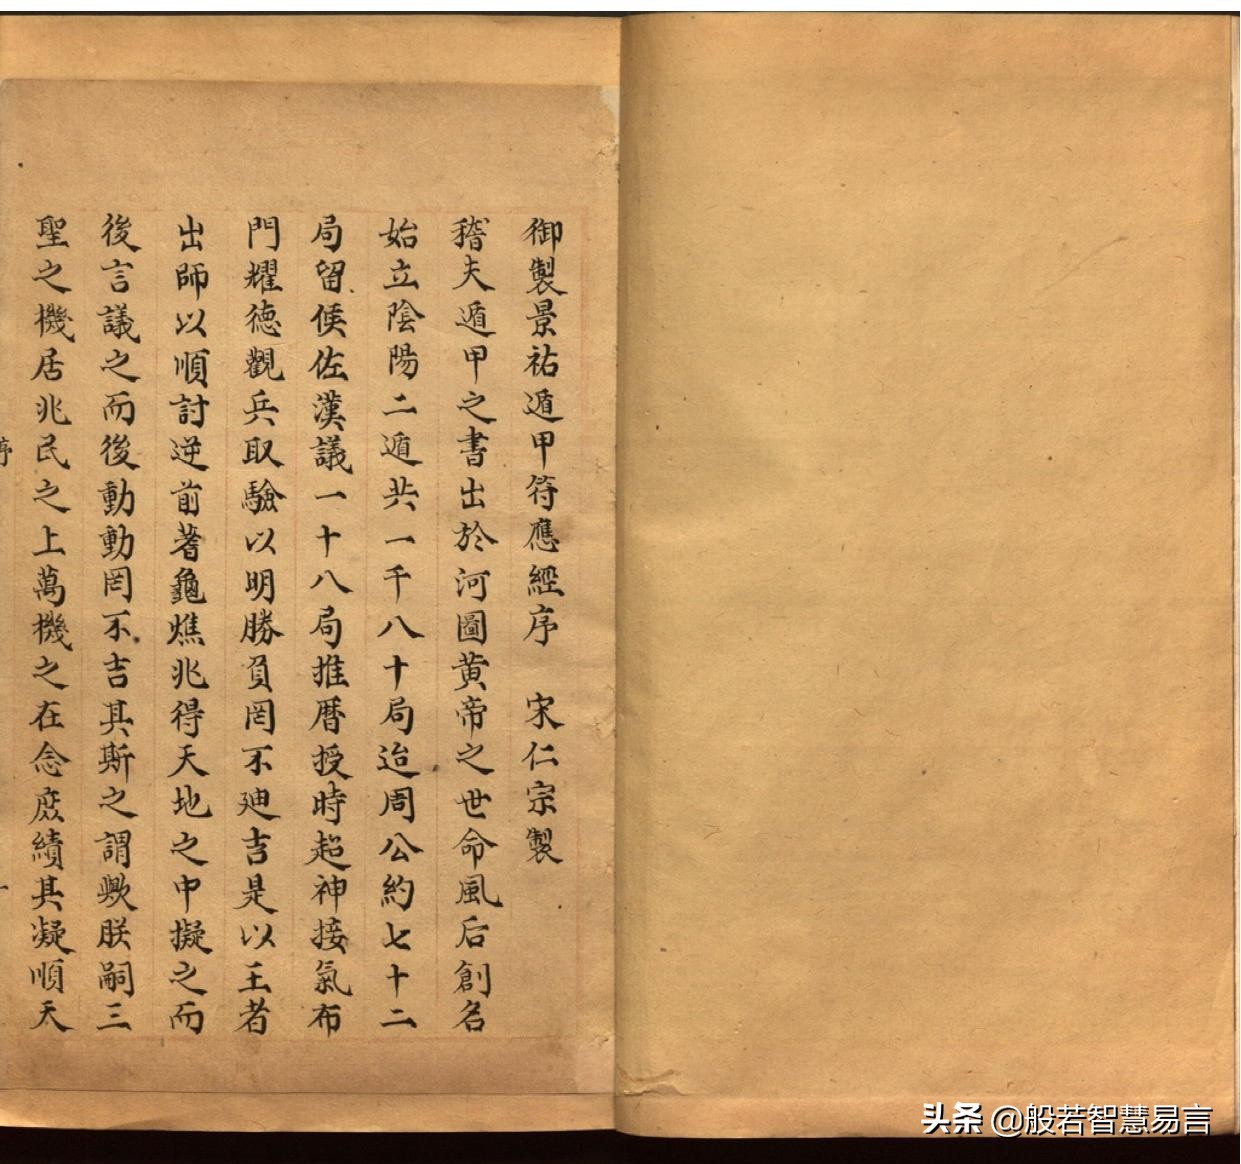 御製景祐遁甲符應經序　宋仁宗製
稽夫遁甲之書出於河圖黄帝之世命風后創名
始立陰陽二遁共一千八十局迨周公約七十二
局留侯佐漢議一十八局推曆授時超神接氣布
門耀德觀兵取驗以明勝負罔不廸吉是以王者
出師以順討逆前著龜燋兆得天地之中擬之而
後言議之而後動動罔不吉其斯之謂歟朕嗣三
聖之機居兆民之上萬機之在念庶績其凝順天
序
一
头条 @般若智慧易言